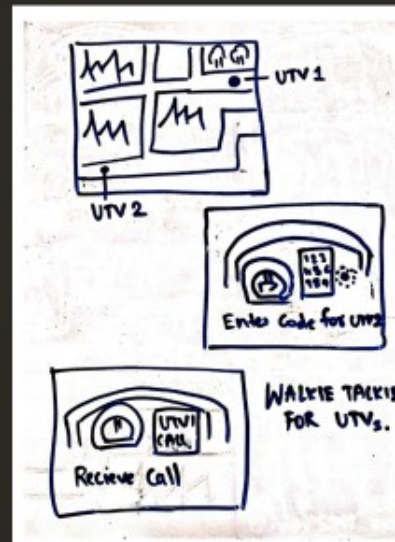 UTV 1
UTV 2
1 2 3
4 5 6
7 8 9
Enter Code for UTV2
UTV1
CALL
Recieve Call
WALKIE TALKIE
FOR UTVs.